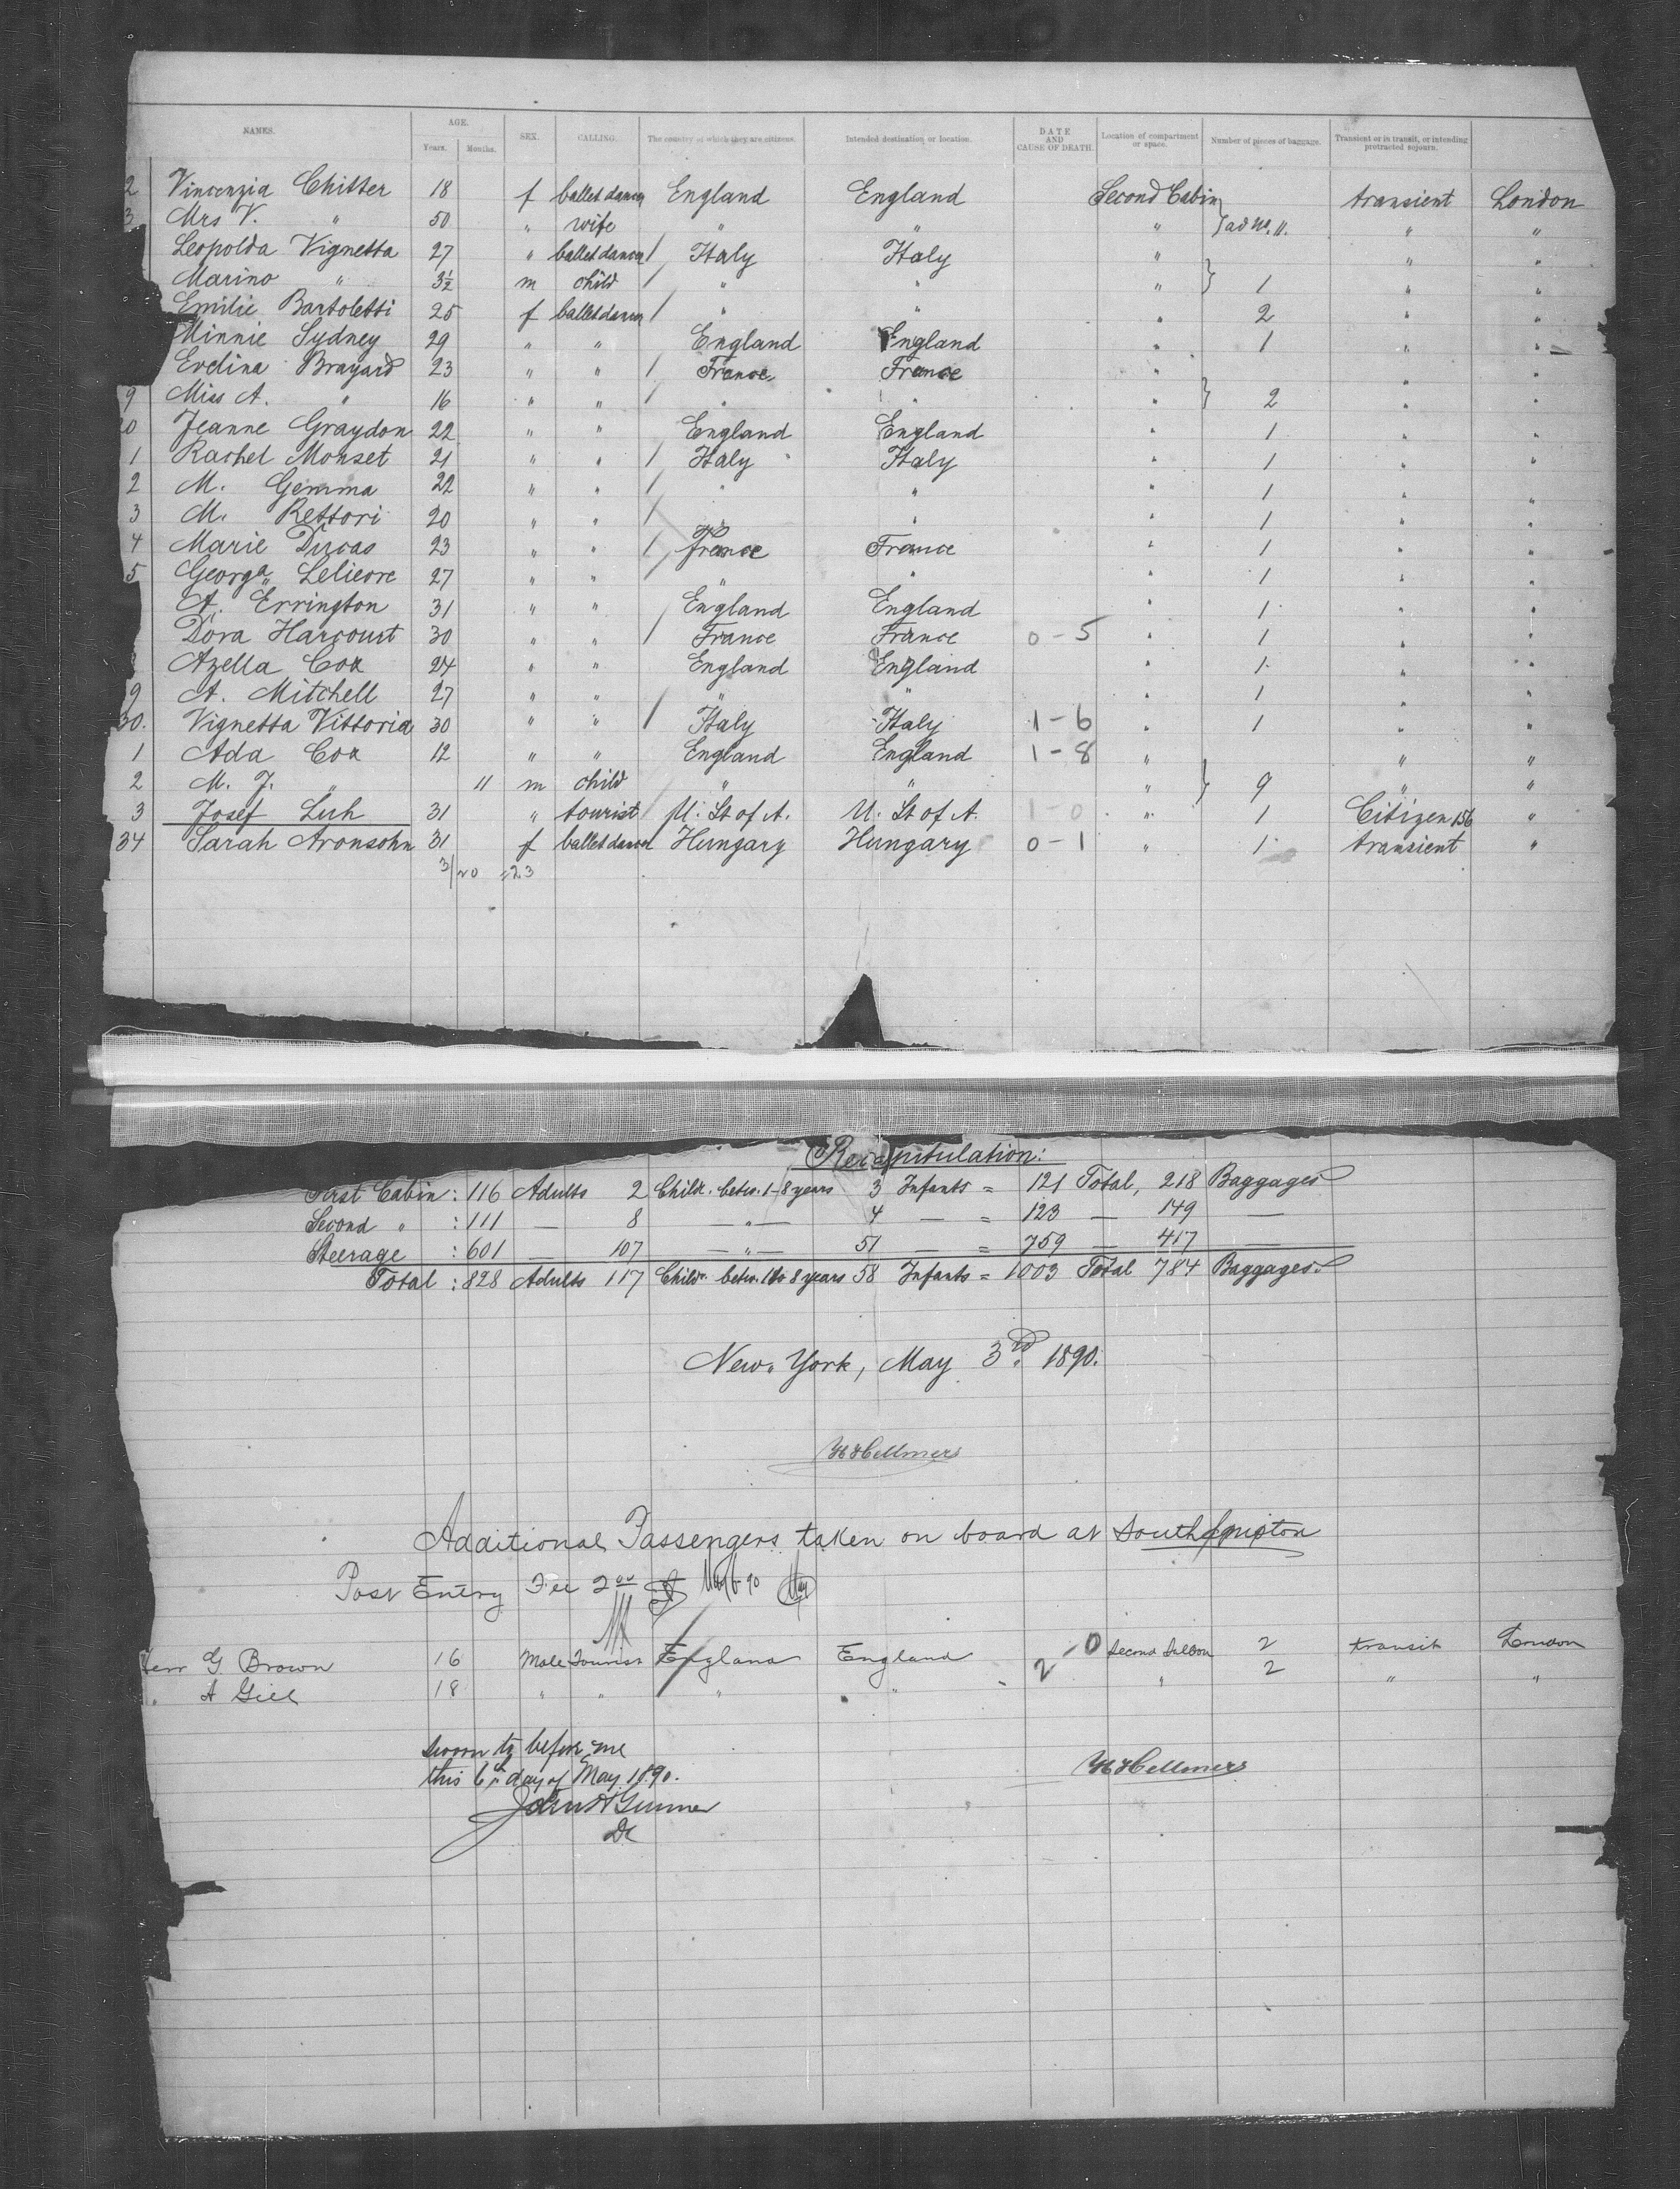 NAMES. AGE. SEX. CALLING. The country of which they are citizens. Intended destination or location. DATE AND CAUSE OF DEATH. Location of compartment or space. Number of pieces of baggage. Transient or in transit, or intending protracted sojourn.
Years. Months.
2 Vincenzia Chitter 18 f ballet dancer England England Second Cabin transient London
3 Mrs V. " 50 " wife " " " } ad No. 11. " "
Leopolda Vignetta 27 " ballet dancer / Italy Italy " " "
Marino " 3½ m child / " " " } 1 " "
Emilie Bartoletti 25 f ballet dancer / " " " 2 " "
Minnie Sydney 29 " " England England " 1 " "
Evelina Brayard 23 " " / France France " " "
9 Miss A. " 16 " " / " " " } 2 " "
20 Jeanne Graydon 22 " " England England " 1 " "
1 Rachel Monset 21 " " / Italy Italy " 1 " "
2 M. Gemma 22 " " / " " " 1 " "
3 M. Rettori 20 " " / " " " 1 " "
4 Marie Dircas 23 " " / France France " 1 " "
5 Georga Lelieore 27 " " / " " " 1 " "
A. Errington 31 " " England England " 1 " "
Dora Harcourt 30 " " / France France 0-5 " 1 " "
Azella Cox 24 " " England England " 1 " "
9 A. Mitchell 27 " " " " " 1 " "
30. Vignetta Vittoria 30 " " / Italy Italy 1-6 " 1 " "
1 Ada Cox 12 " " England England 1-8 " " "
2 M. J. " 11 m child " " " } 9 " "
3 Josef Luh 31 " tourist U. St of A. U. St of A. 1-0 " 1 Citizen 156 "
34 Sarah Aronsohn 31 f ballet dancer Hungary Hungary 0-1 " 1 transient "
3/20 = 23
Recapitulation:
First Cabin : 116 Adults 2 Childr. betw. 1-8 years 3 Infants = 121 Total, 218 Baggages
Second " : 111 — 8 —"— 4 — = 123 — 149 —
Steerage : 601 — 107 —"— 51 — = 759 — 417 —
Total : 828 Adults 117 Childr. betw. 1 to 8 years 58 Infants = 1003 Total 784 Baggages
New-York, May 3rd 1890.
H Hellmers
Additional Passengers taken on board at Southampton
Post Entry Fee 2 00 May 6-90
Herr G Brown 16 Male Tourist England England 2-0 Second Saloon 2 transit London
" A Gill 18 " " " " " 2 " "
Sworn to before me
this 6th day of May 1890. H Hellmers
John A Gunner
DC